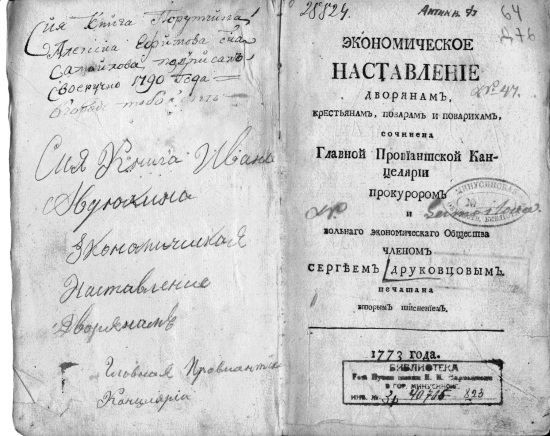 Сия Книга
Алексѣя Ефимова сна
Самойлова подписалъ
Своеручно 1790 года
Сия Книга Ивана
Авдюкина
Экономичиская
Наставление
Дворянамъ
Главная Провиантс
Канцларiя
25824.
Антикв. 73
64
Д 76
ЭКОНОМИЧЕСКОЕ
НАСТАВЛЕНIЕ
ДВОРЯНАМЪ,
КРЕСТЬЯНАМЪ, ПОВАРАМЪ И ПОВАРИХАМЪ,
СОЧИНЕНА
Главной Провiантской Кан-
целярiи
№ 47.
ПРОКУРОРОМЪ
И
ВОЛЬНАГО ЭКОНОМИЧЕСКАГО Общества
ЧЛЕНОМЪ
СЕРГѢЕМЪ ДРУКОВЦОВЫМЪ,
ПЕЧАТАНА
ВТОРЫМЪ ТИСНЕНIЕМЪ.
МИНУСИНСКАЯ
1773 года.
БИБЛИОТЕКА
Гос. Музея имени Н. М. Мартьянова
В ГОР. МИНУСИНСКЕ
ИНВ. №